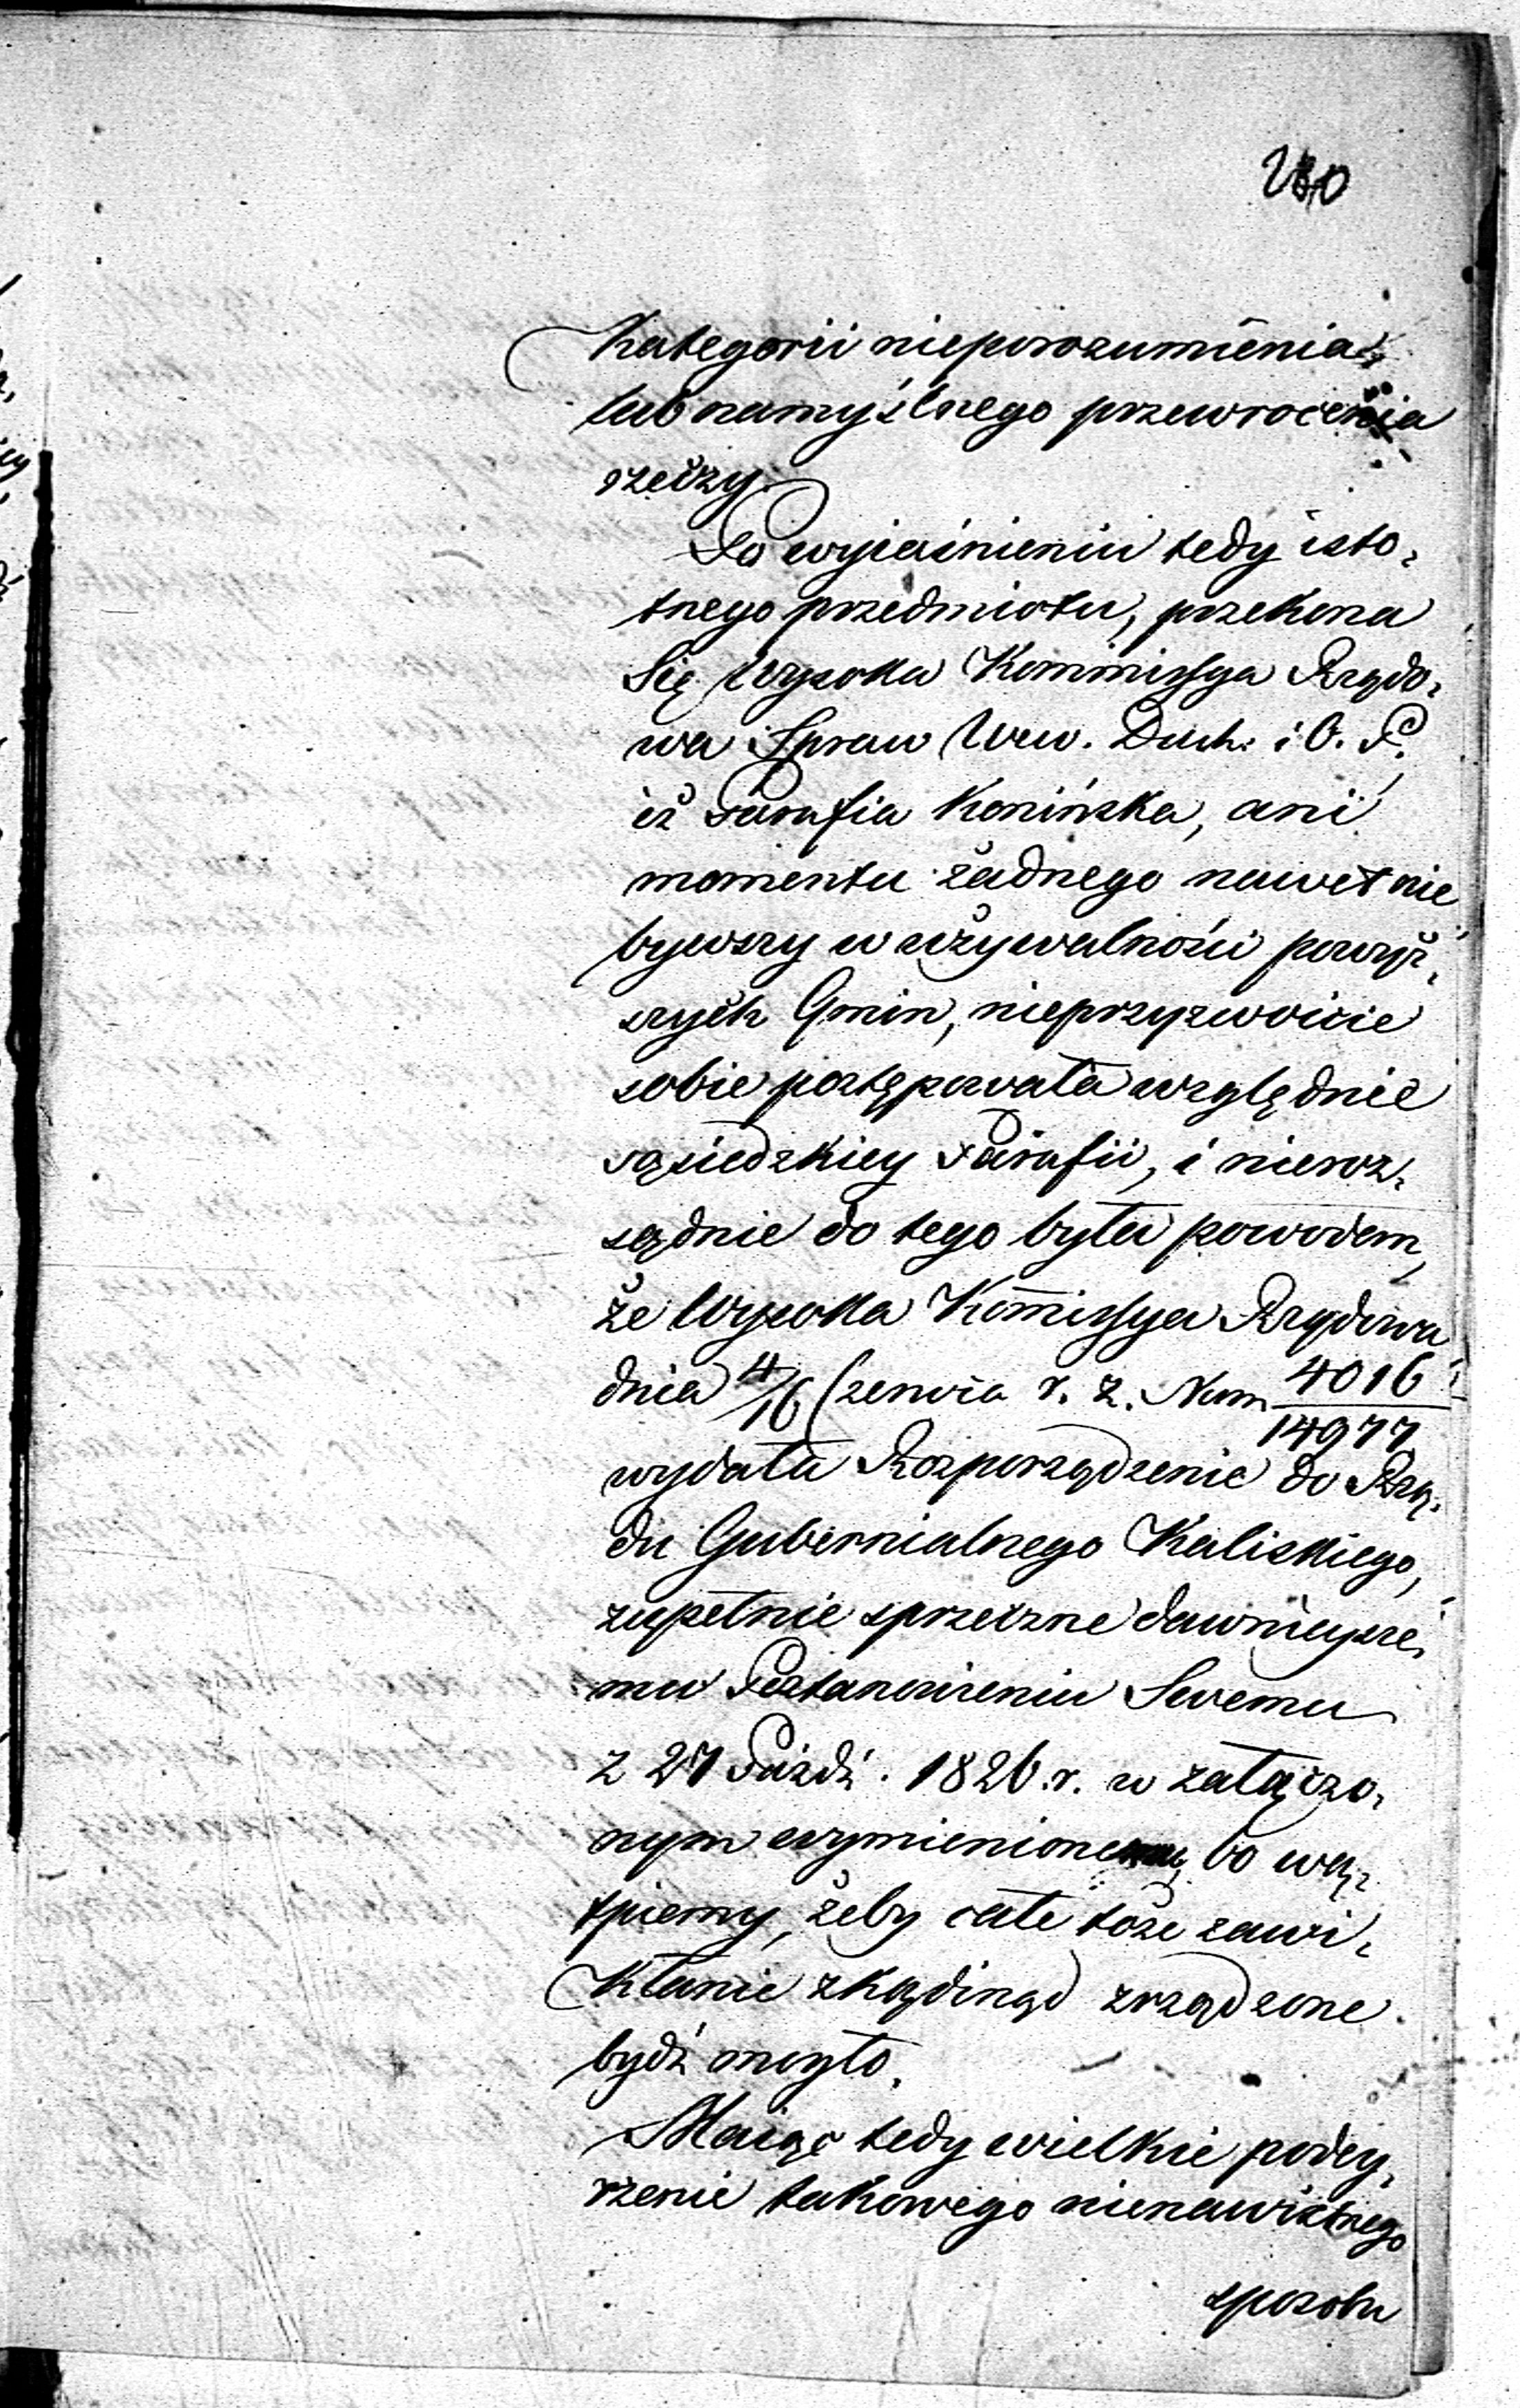 280
Kategorii nieporozumienia
lub namyślnego przewrocenia
rzeczy.
Po wyiaśnieniu tedy isto-
tnego przedmiotu, przekona
Się Wysoka Kommissya Rządo-
wa Spraw Wew. Duch: i O. P.,
iż Parafia Konińska, ani
momentu żadnego nawet nie
bywszy w używalności powyż-
szych Gmin, nieprzyzwoicie
sobie postępowała względnie
sąsiedzkiey Parafii, i nieroz-
sądnie do tego była powodem,
że Wysoka Kom̄issya Rządowa
dnia 4/16 Czerwca r. z. Num 4016/14977
wydała Rozporządzenie do Rzą-
du Gubernialnego Kaliskiego,
zupełnie sprzeczne dawnieysze-
mu Postanowieniu Swemu
z 27 Paźdź. 1826. r. w załączo-
nym wymienionemu, bo wą-
tpiemy, żeby całe toże zawi-
kłanie zkądinąd zrządzone
bydź mogło.
Maiąc tedy wielkie podey-
rzenie takowego nienawistnego
sposobu